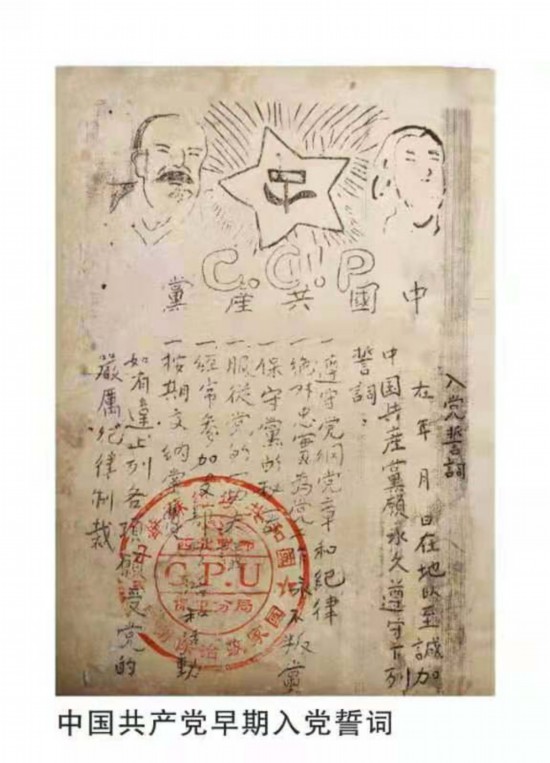 C.C.P
中國共産黨
入党誓詞
在 年 月 日在地以至誠加
中国共産黨願永久遵守下列
誓詞：
一遵守党綱党章和紀律
一絕对忠實為党 永不叛黨
一保守黨的秘
一服從党的一切
一經常參加支部 和活動
一按期交納党費
如有違上列各項願受党的
嚴厲紀律制裁
G.P.U
中国共产党早期入党誓词